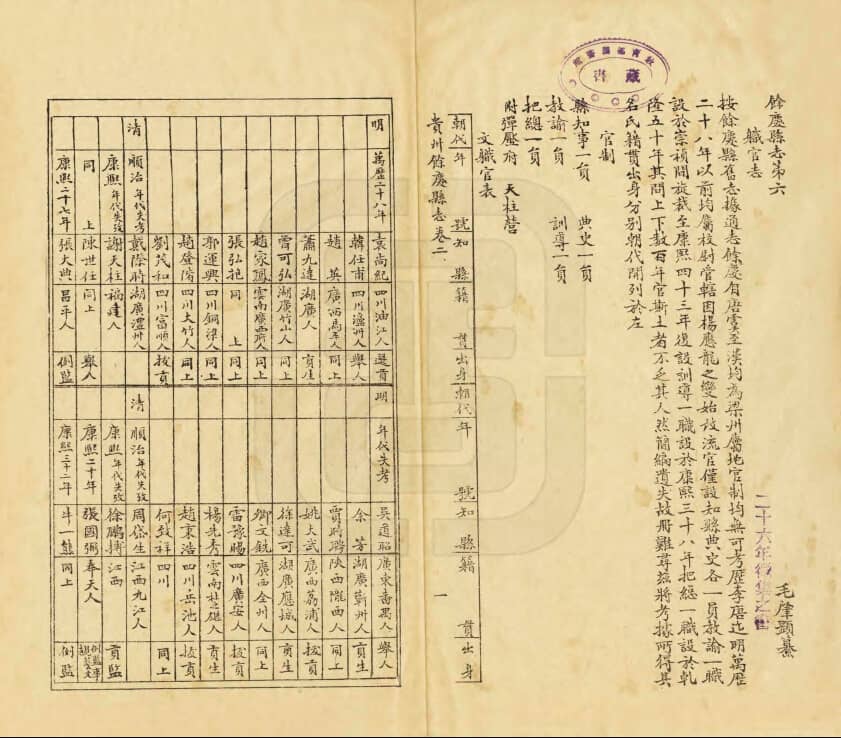 餘慶縣志第六
職官志
毛肇顯纂
按餘慶縣舊志據通志餘慶自唐虞至漢均為梁州屬地官制均無可考歷李唐迄明萬歷
二十八年以前均屬校尉管轄因楊應龍之變始改流官僅設知縣典史各一員教諭一職
設於崇禎間旋裁至康熙四十三年復設訓導一職設於康熙三十八年把總一職設於乾
隆五十年其間上下數百年官斯土者不乏其人然簡編遺失故冊難尋茲將考據所得其
名氏籍貫出身分別朝代開列於左
官制
縣知事一員 典史一員
教諭一員 訓導一員
把總一員
附彈壓府 天柱營
文職官表
朝代 年號 知縣 籍貫 出身 朝代 年號 知縣 籍貫 出身
貴州餘慶縣志卷二 一
明 萬歷二十八年 袁尚紀 四川油江人 選貢 明 年代失考 吳道昭 廣東番禺人 舉人
韓任甫 四川瀘州人 舉人 余芳 湖廣蘄州人 貢生
趙英 廣西馬平人 同上 賈時聘 陝西隴西人 同上
蕭九達 湖廣人 貢生 姚大武 廣西荔浦人 拔貢
曾可弘 湖廣竹山人 同上 徐達可 湖廣應城人 貢生
趙家鳳 雲南廣西府人 同上 卿文銳 廣西全州人 同上
張弘抱 同上 同上 雷豫賜 四川廣安人 拔貢
郭運興 四川銅梁人 同上 楊先秀 雲南人 貢生
趙登階 四川大竹人 同上 趙秉浩 四川岳池人 拔貢
劉茂和 四川富順人 拔貢 何致祥 四川 同上
清 順治年代失考 戴際時 湖廣澧州人 清 順治年代失攷 周岱生 江西九江人
康熙年代失攷 謝天柱 福建人 康熙年代失攷 徐鵬摶 江西 貢監
同上 陳世任 同上 舉人 康熙二十年 張國弼 奉天人 例監
康熙二十七年 張大典 昌平人 例監 康熙三十二年 牛一熊 同上 例監
藏書